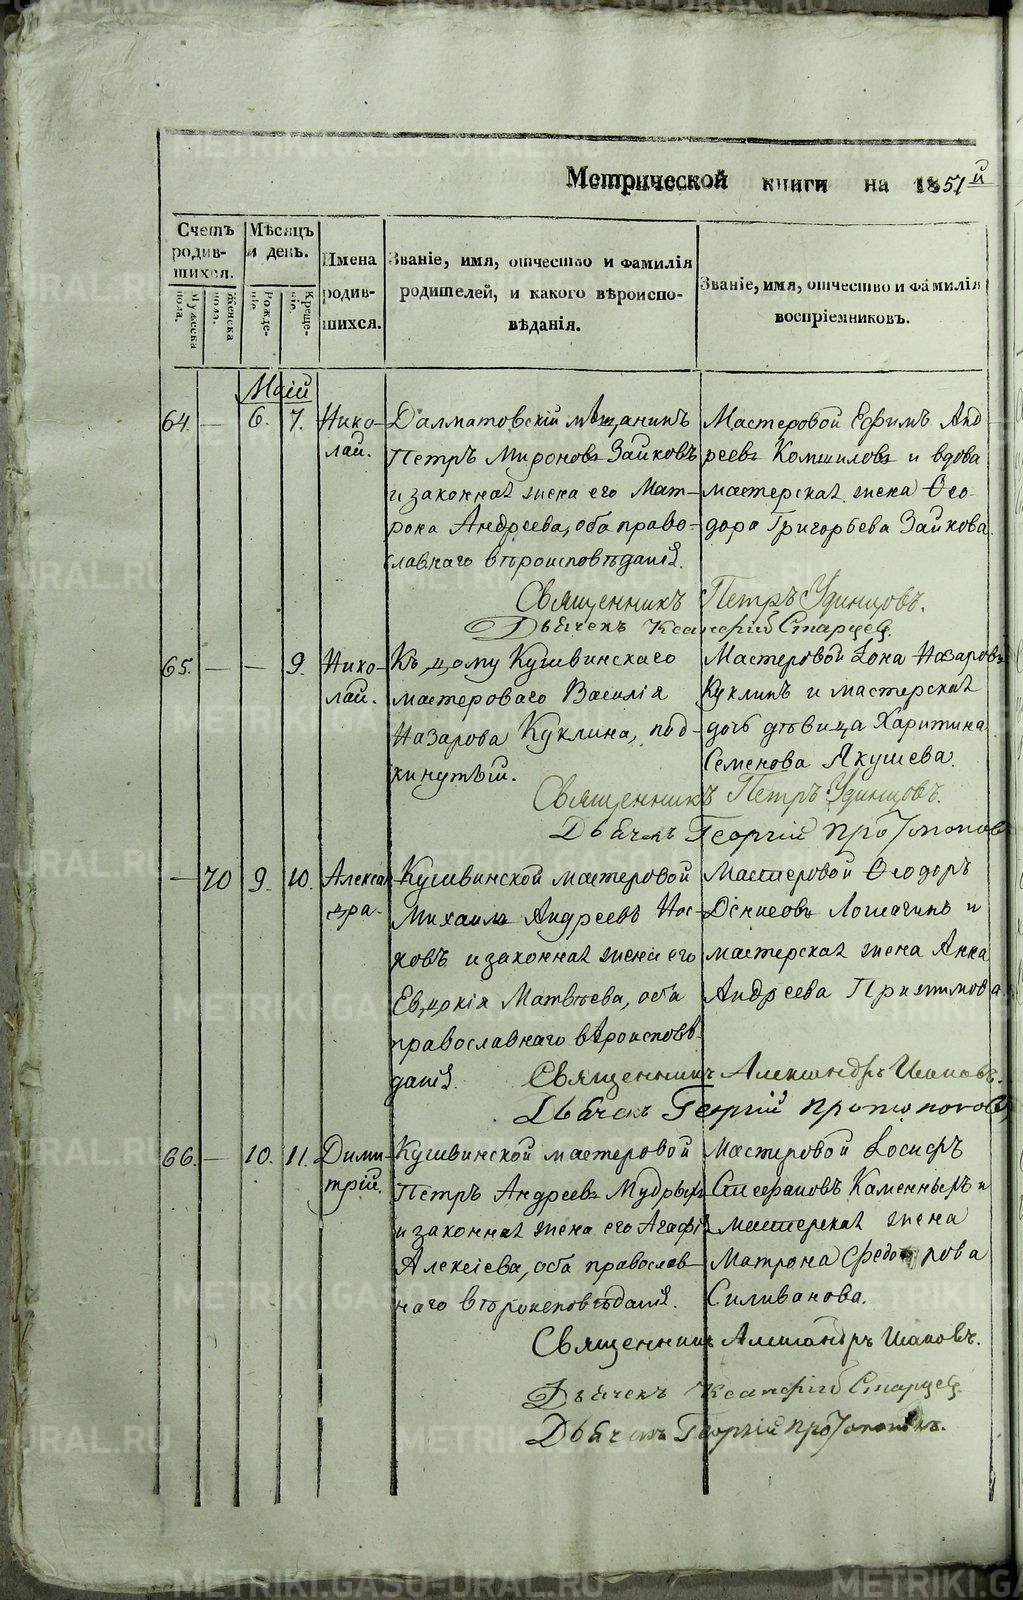 Метрической книги на 1851й
Счетъ родив-шихся.
Мужеска пола.
Женска пола.
Мѣсяцъ и день.
Рожде-нiе.
Креще-нiе.
Имена родив-шихся.
Званiе, имя, отчество и фамилiя
родителей, и какого вѣроиспо-
вѣданiя.
Званiе, имя, отчество и фамилiя
воспрiемниковъ.
Маiй
64. — 6. 7. Нико-
лай.
Далматовскiй мѣщанинъ
Петръ Мироновъ Зайковъ
и законная жена его Мат-
рона Андреева, оба право-
славнаго вѣроисповѣданiя.
Мастеровой Ефимъ Анд
реевъ Комшиловъ и вдова
мастерская жена Ѳео-
дора Григорьева Зайкова.
Священникъ Петръ Удинцовъ.
Дьячекъ Старцев
65. — — 9. Нико-
лай.
Къ дому Кушвинскаго
мастероваго Василiя
Назарова Куклина, под-
кинутый.
Мастеровой Iона Назаровъ
Куклинъ и мастерская
дочь дѣвица Харитина
Семенова Якушева.
Священникъ Петръ Удинцовъ.
Дьячекъ Георгiй Протопопов
— 70 9. 10. Алексан-
дра.
Кушвинской мастеровой
Михаилъ Андреевъ Нос-
ковъ и законная жена его
Евдокiя Матвѣева, оба
православнаго вѣроисповѣ-
данiя.
Мастеровой Ѳеодоръ
Денисовъ Лошагинъ и
мастерская жена Анна
Андреева
Священникъ Александръ Iвановъ.
Дьячекъ Георгiй Протопопов
66. — 10. 11. Дими-
трiй.
Кушвинской мастеровой
Петръ Андреевъ Мудрыхъ
и законная жена его Агафiя
Алексiева, оба православ-
наго вѣроисповѣданiя.
Мастеровой Iосифъ
Стефановъ Каменныхъ и
мастерская жена
Матрона Федорова
Силиванова.
Священникъ Александръ Iвановъ.
Дьячекъ Старцев
Дьячекъ Георгiй Протопоповъ.
METRIKI.GASO-URAL.RU